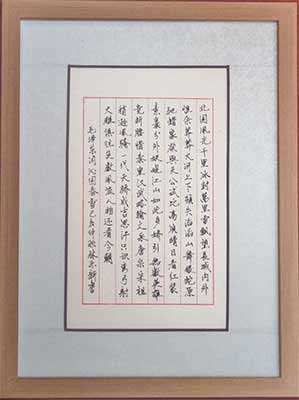 北国風光千里冰封萬里雪飘望長城内外
惟余莽莽大河上下頓失滔滔山舞銀蛇原
馳蜡象欲與天公試比高須晴日看红装
素裹分外妖嬈江山如此多嬌引無數英雄
競折腰惜秦皇漢武略輸文采唐宗宋祖
稍遜風騷一代天驕成吉思汗只識彎弓射
大雕俱往矣數風流人物還看今朝
毛泽东词沁园春雪己丑仲秋林書